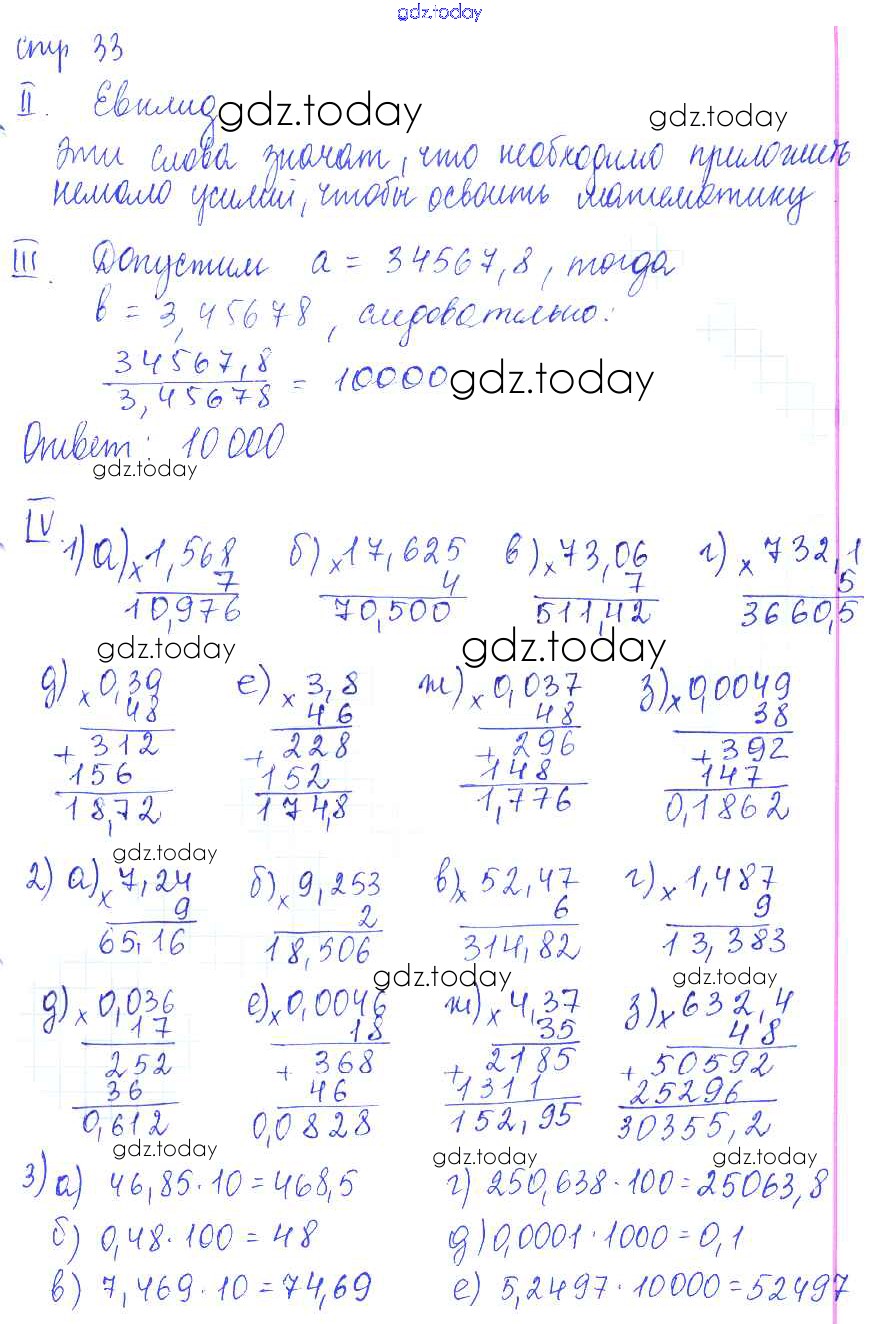 gdz.today
стр 33
II. Евклид gdz.today gdz.today
Эти слова значат, что необходимо приложить
немало усилий, чтобы освоить математику
III. Допустим a = 34567,8, тогда
b = 3,45678, следовательно:
34567,8
3,45678 = 10000 gdz.today
Ответ: 10 000
gdz.today
IV. 1) а) × 1,568 б) × 17,625 в) × 73,06 г) × 732,1
7 4 7 5
10,976 70,500 511,42 3660,5
gdz.today gdz.today
д) × 0,39 е) × 3,8 ж) × 0,037 з) × 0,0049
48 46 48 38
+ 312 + 228 + 296 + 392
156 152 148 147
18,72 174,8 1,776 0,1862
gdz.today gdz.today
2) а) × 7,24 б) × 9,253 в) × 52,47 г) × 1,487
9 2 6 9
65,16 18,506 314,82 13,383
gdz.today gdz.today
д) × 0,036 е) × 0,0046 ж) × 4,37 з) × 632,4
17 18 35 48
252 + 368 + 2185 + 50592
36 46 1311 25296
0,612 0,0828 152,95 30355,2
gdz.today gdz.today gdz.today
3) а) 46,85 · 10 = 468,5 г) 250,638 · 100 = 25063,8
б) 0,48 · 100 = 48 д) 0,0001 · 1000 = 0,1
в) 7,469 · 10 = 74,69 е) 5,2497 · 10000 = 52497